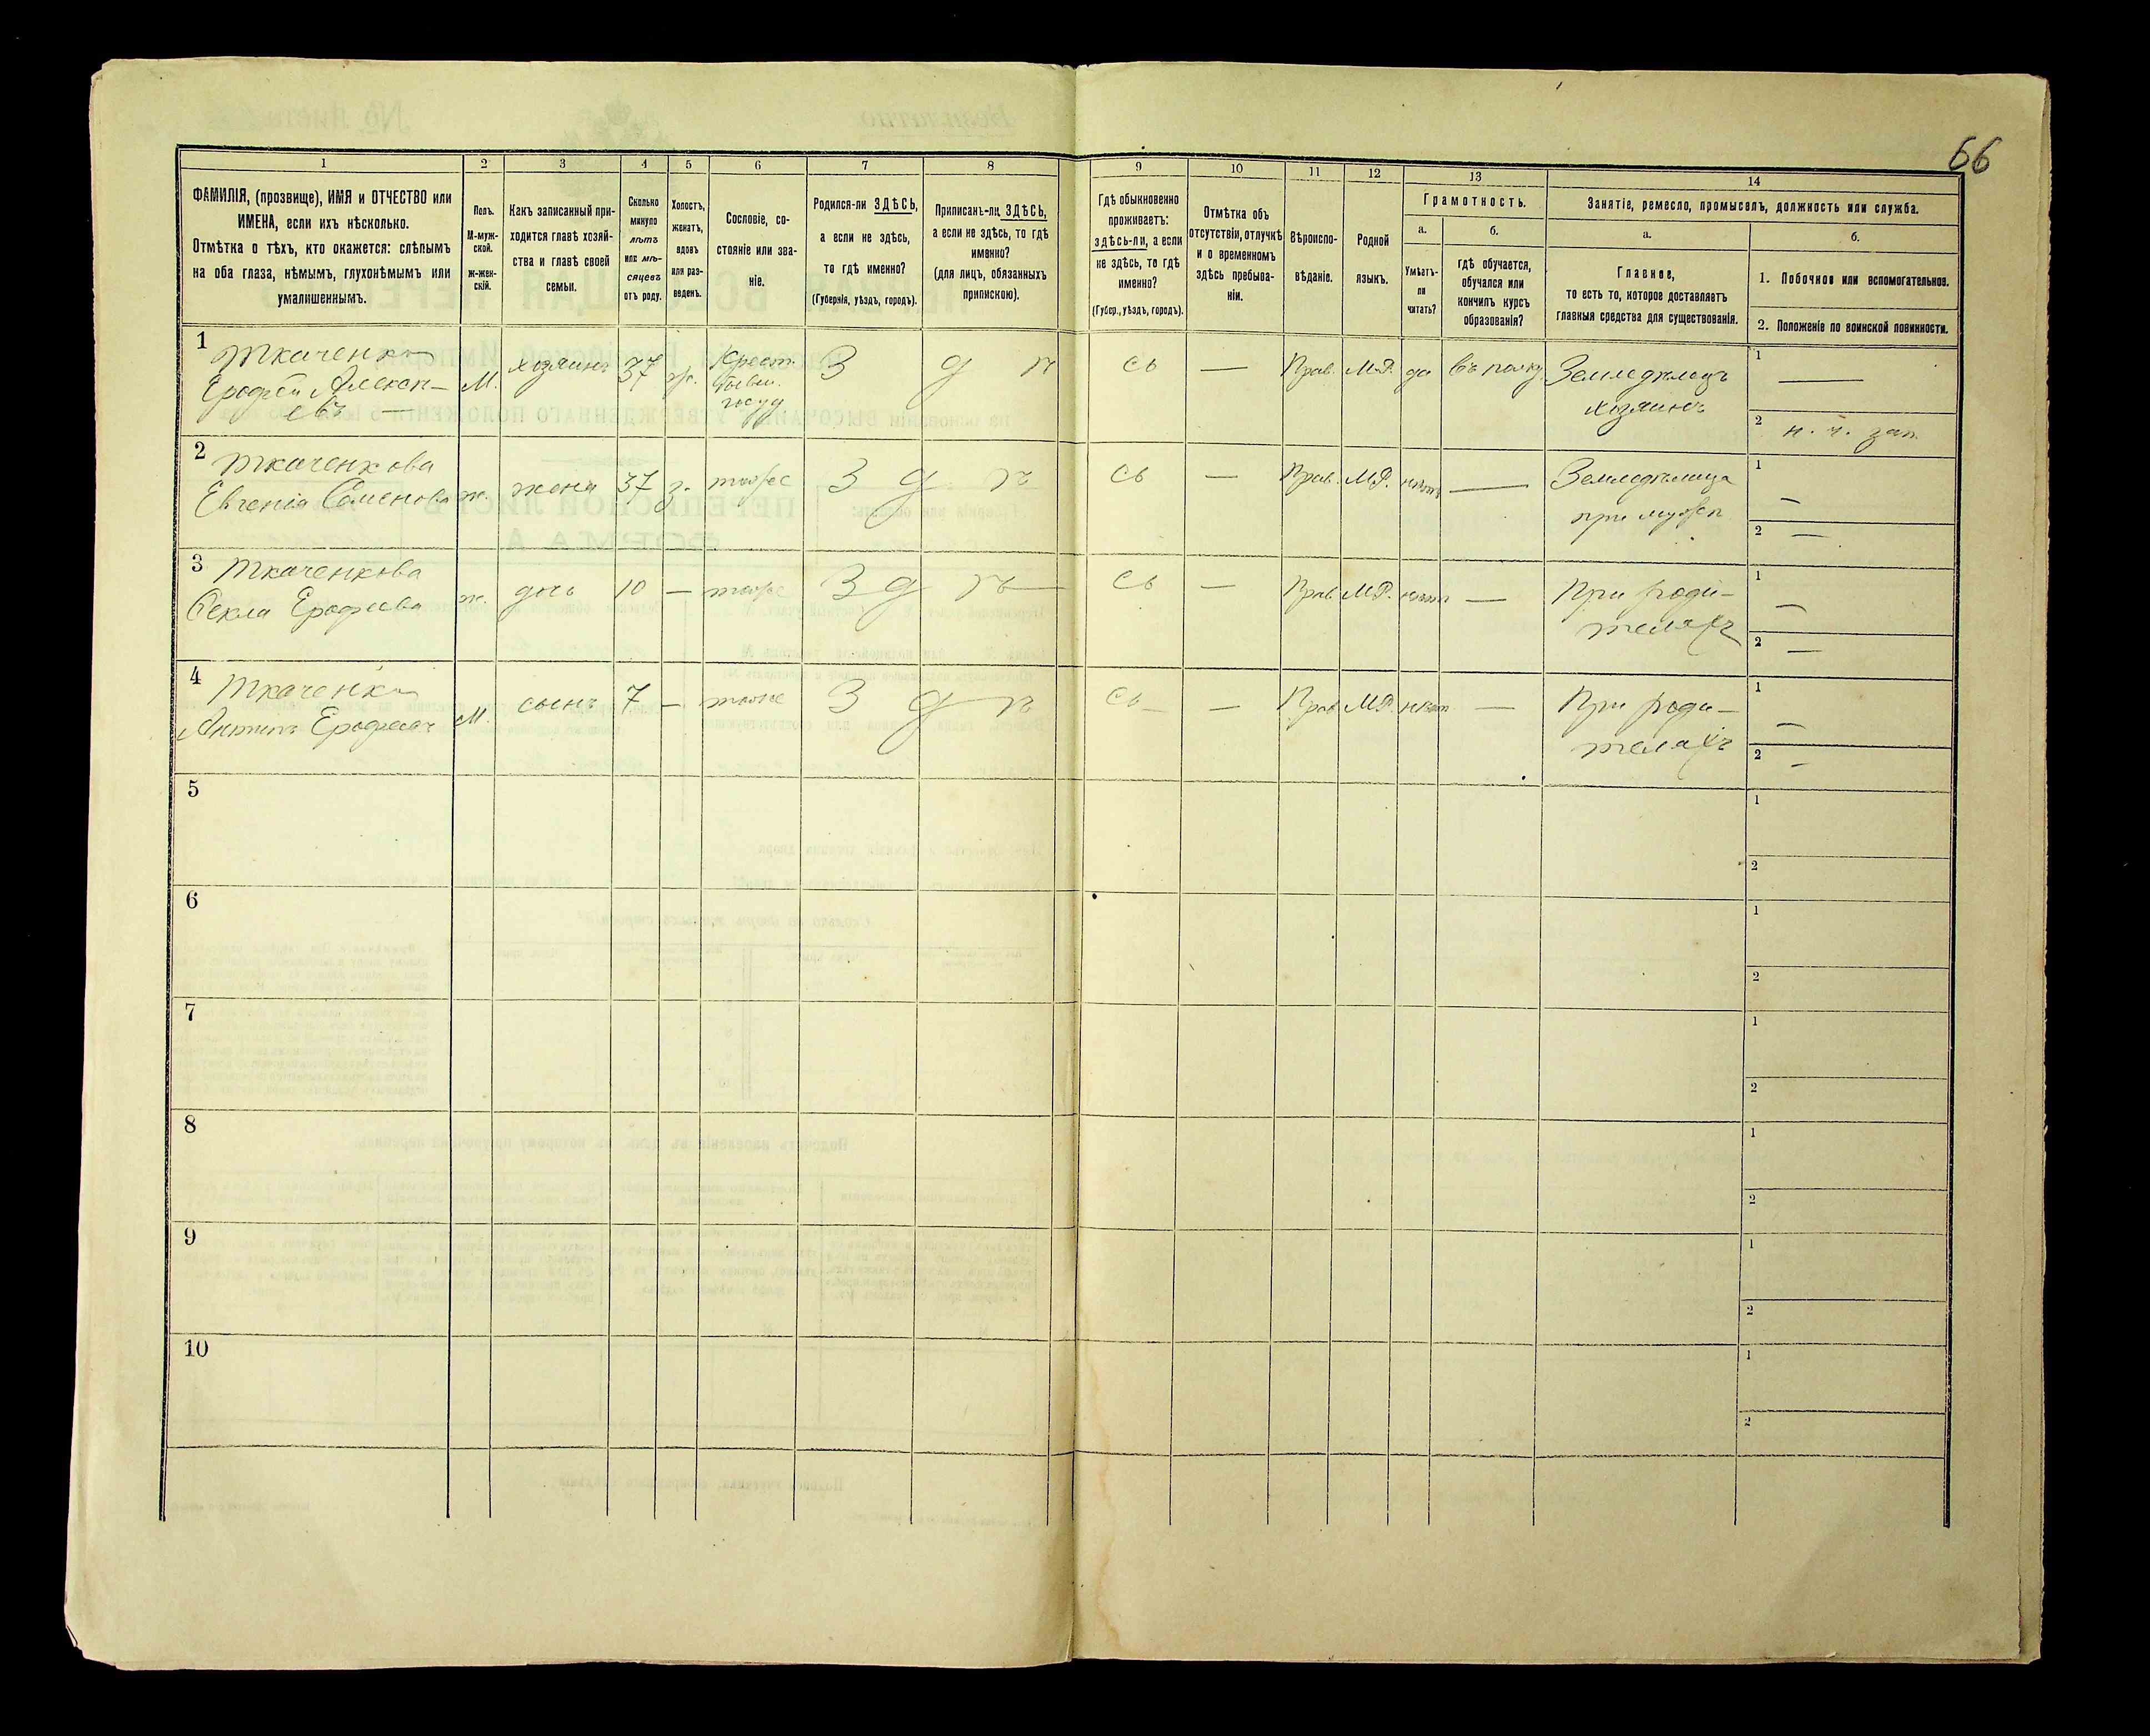 66
1 2 3 4 5 6 7 8 9 10 11 12 13 14
ФАМИЛІЯ, (прозвище), ИМЯ и ОТЧЕСТВО или
ИМЕНА, если ихъ нѣсколько.
Отмѣтка о тѣхъ, кто окажется: слѣпымъ
на оба глаза, нѣмымъ, глухонѣмымъ или
умалишеннымъ.
Полъ.
М-муж-
ской.
ж-жен-
скій.
Какъ записанный при-
ходится главѣ хозяй-
ства и главѣ своей
семьи.
Сколько
минуло
лѣтъ
или мѣ-
сяцевъ
отъ роду.
Холостъ,
женатъ,
вдовъ
или раз-
веденъ.
Сословіе, со-
стояніе или зва-
ніе.
Родился-ли ЗДѢСЬ,
а если не здѣсь,
то гдѣ именно?
(Губернія, уѣздъ, городъ).
Приписанъ-ли ЗДѢСЬ,
а если не здѣсь, то гдѣ
именно?
(для лицъ, обязанныхъ
припискою).
Гдѣ обыкновенно
проживаетъ:
здѣсь-ли, а если
не здѣсь, то гдѣ
именно?
(Губер., уѣздъ, городъ).
Отмѣтка объ
отсутствіи, отлучкѣ
и о временномъ
здѣсь пребыва-
ніи.
Вѣроиспо-
вѣданіе.
Родной
языкъ.
Грамотность.
а.
Умѣетъ-
ли
читать?
б.
гдѣ обучается,
обучался или
кончилъ курсъ
образованія?
Занятіе, ремесло, промыселъ, должность или служба.
а.
Главное,
то есть то, которое доставляетъ
главныя средства для существованія.
б.
1. Побочное или вспомогательное.
2. Положеніе по воинской повинности.
1
Ткаченко
Ерофей Алексѣ-
евъ —
М. хозяинъ 37 ж. Крест.
бывш.
госуд
З д ѣ сь — Прав. М.Р. да въ полку Земледѣлецъ
хозяинъ
1 —
2 н. ч. зап.
2
Ткаченкова
Евгенія Семенова ж. жена 37 з. тоже З д ѣ сь — Прав. М.Р. нѣтъ — Земледѣлица
при мужѣ
1 —
2 —
3
Ткаченкова
Ѳекла Ерофеева ж. дочь 10 — тоже З д ѣ сь — Прав. М.Р. нѣтъ — При роди-
теляхъ
1 —
2 —
4
Ткаченко
Антипъ Ерофеевъ М. сынъ 7 — тоже З д ѣ сь — Прав. М.Р. нѣтъ — При роди-
теляхъ
1 —
2 —
5
1
2
6
1
2
7
1
2
8
1
2
9
1
2
10
1
2